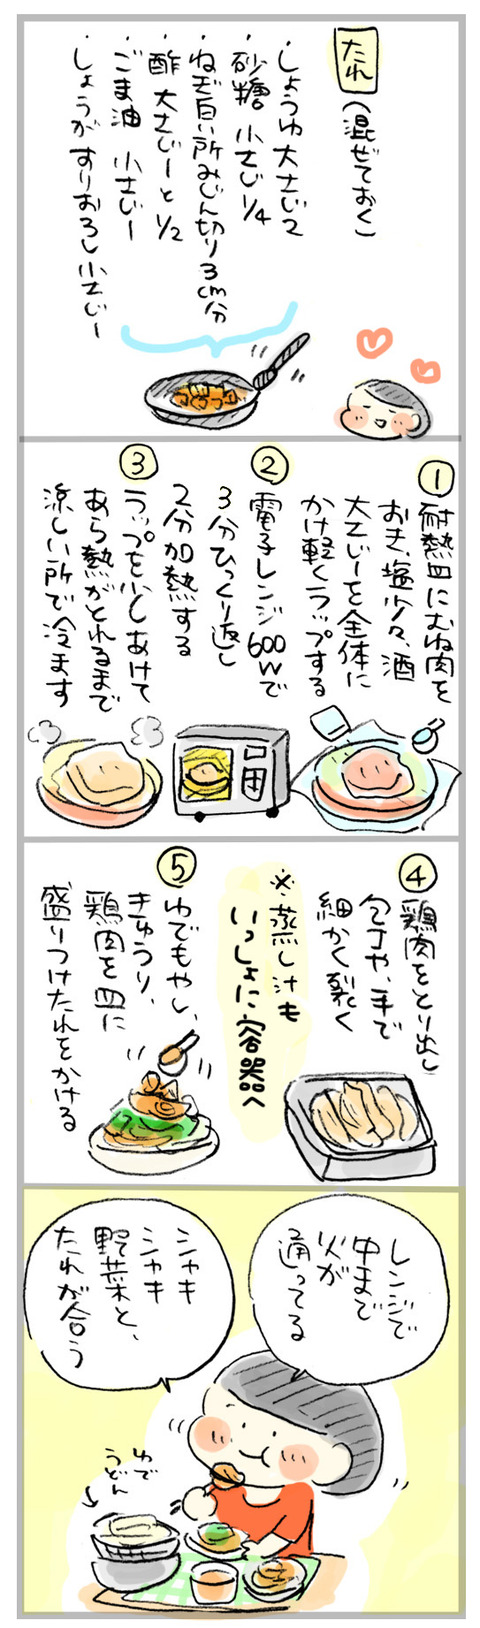 たれ
(混ぜておく)
・しょうゆ大さじ2
・砂糖 小さじ1/4
・ねぎ白い所みじん切り3cm分
・酢 大さじ1と1/2
・ごま油 小さじ1
・しょうがすりおろし小さじ1
①
耐熱皿にむね肉を
おき、塩少々、酒
大さじ1を全体に
かけ軽くラップする
②
電子レンジ600Wで
3分ひっくり返し
2分加熱する
③
ラップを少しあけて
あら熱がとれるまで
涼しい所で冷ます
④
鶏肉をとり出し
包丁や、手で
細かく裂く
※蒸し汁も
いっしょに容器へ
⑤
ゆでもやし、
きゅうり、
鶏肉を皿に
盛りつけたれをかける
レンジで
中まで
火が
通ってる
シャキ
シャキ
野菜と、
たれが合う
ゆで
うどん